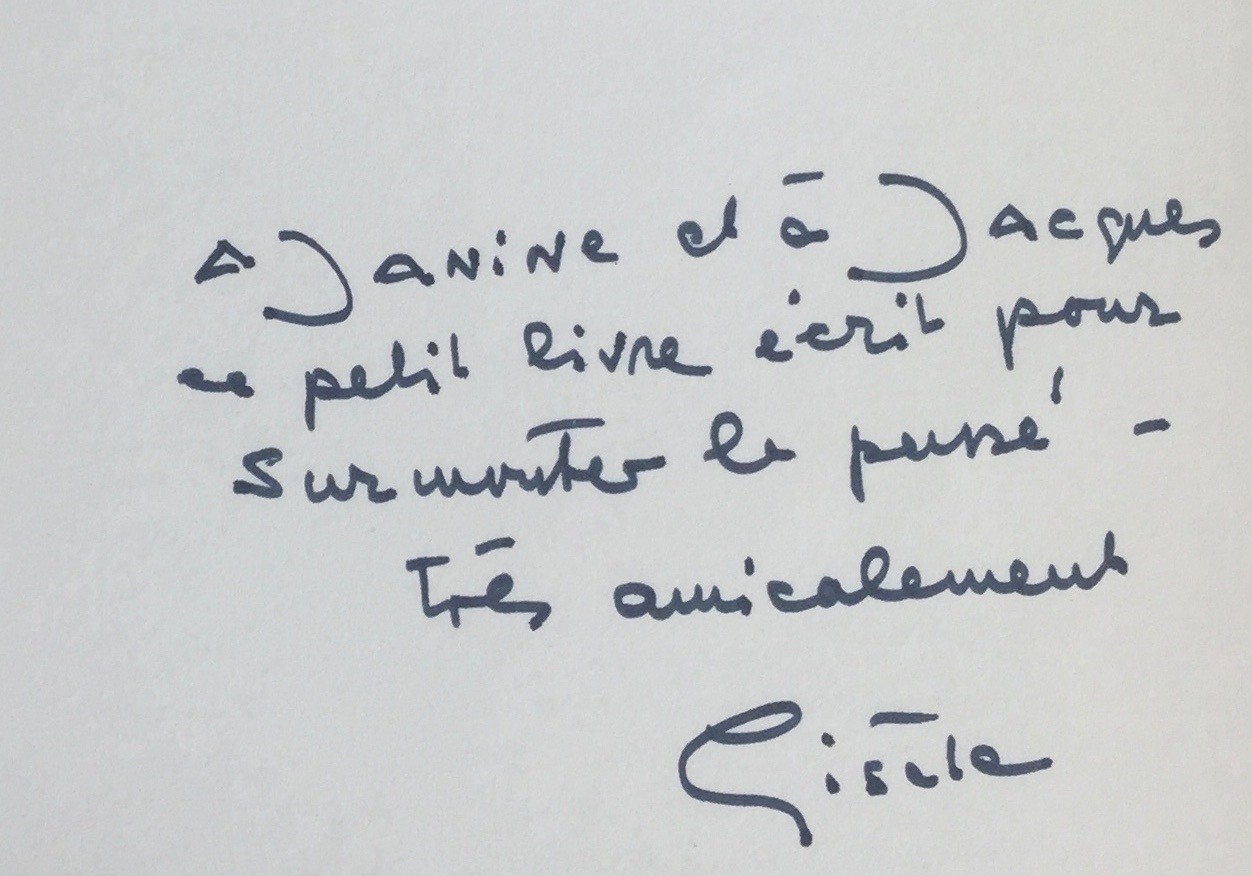 A Janine et à Jacques
ce petit livre écrit pour
surmonter le passé -
très amicalement
Gisèle